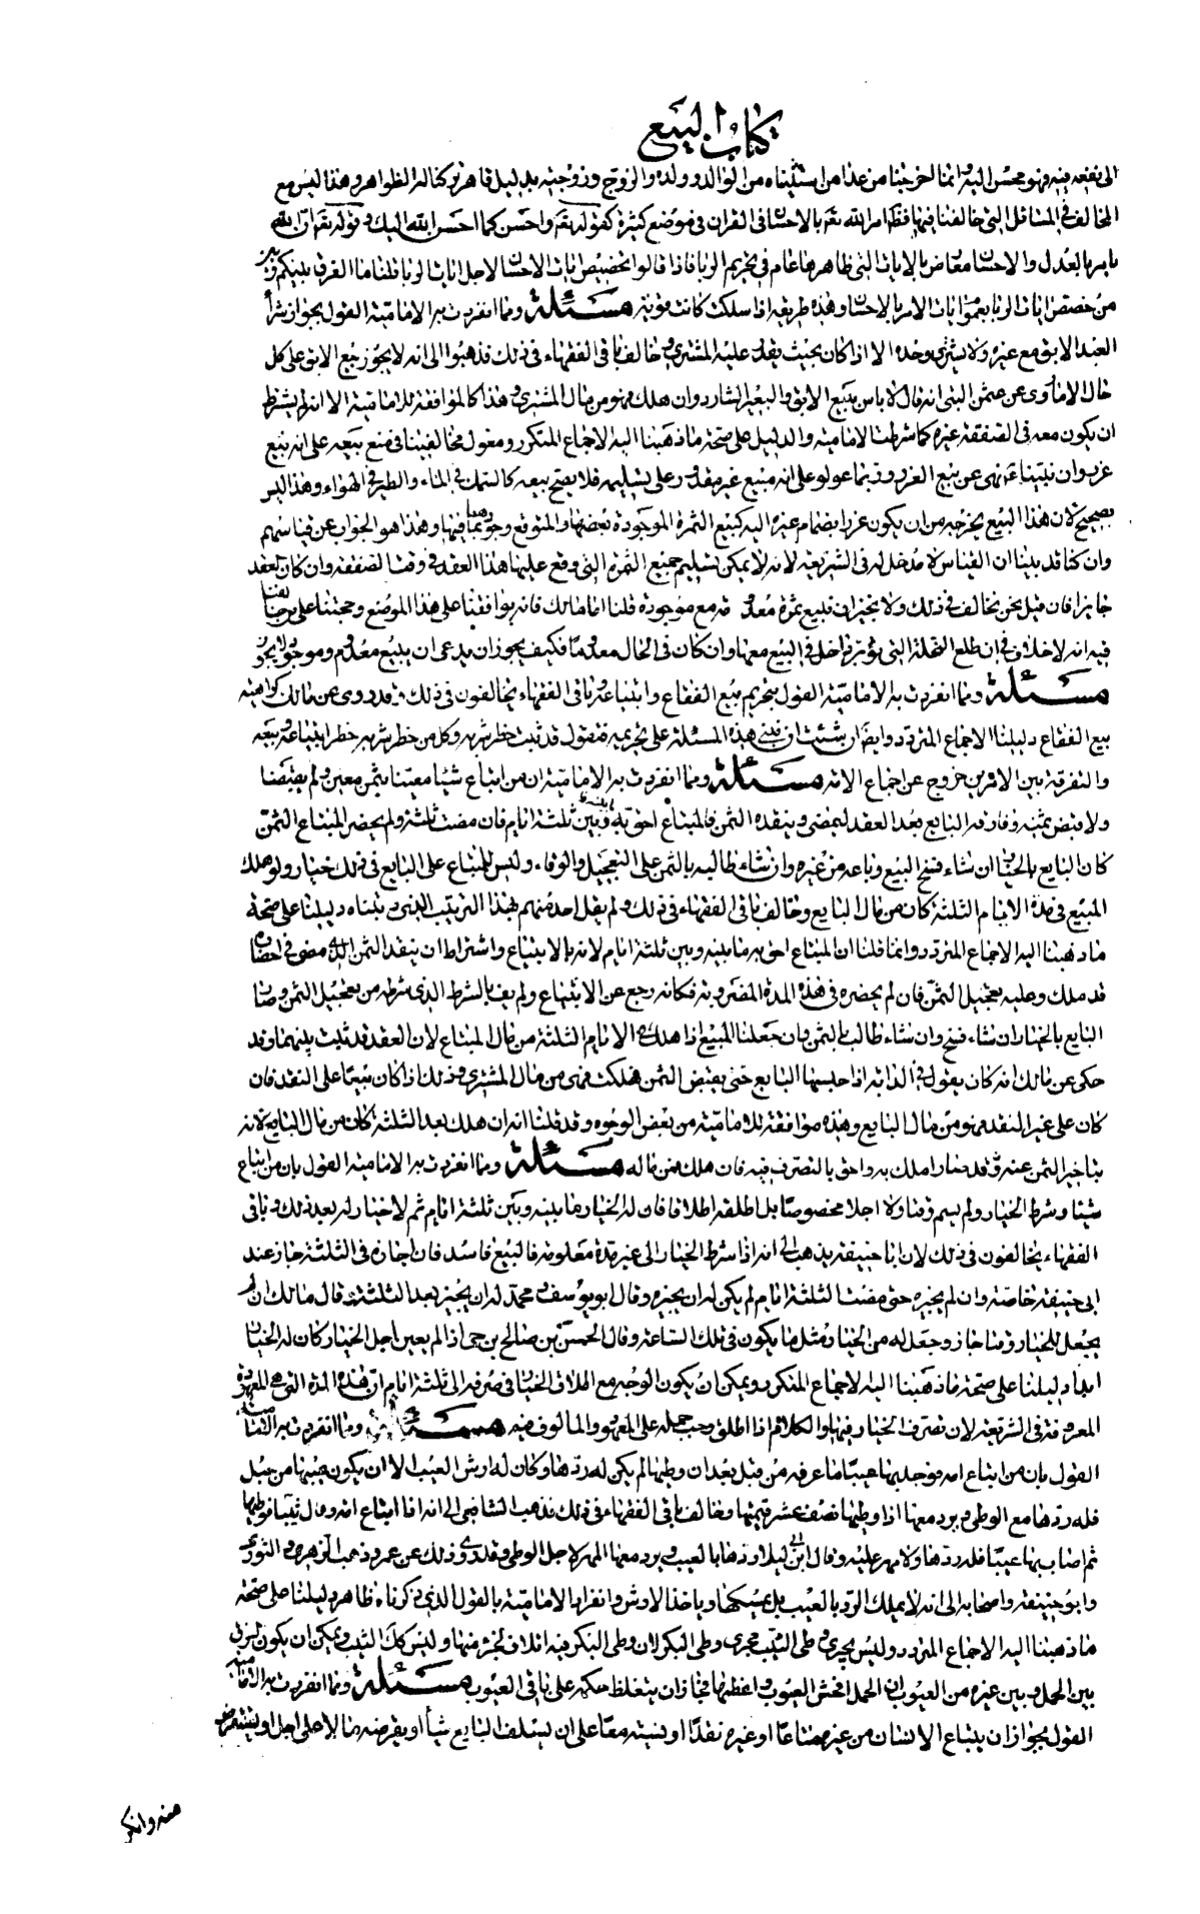 كتاب البيع
الى نفعه فيه فهو محسن اليه وانما اخرجنا من عدا من استثنيناه من الوالد وولده والزوج وزوجته بدليل قاهر تركنا له الظواهر وهذا ليس مع
المخالف في المسائل التي خالفنا فيها فظ امر الله تعه بالاحسان في القران في موضع كثيرة كقوله تعه واحسن كما احسن الله اليك وقوله تعه ان الله
يامر بالعدل والاحسان معارض بالايات التي ظاهرها عام في تحريم الربا فاذا قالوا نخصص ايات الاحسان لاجل ايات الربا قلنا ما الفرق بينكم وبين
من خصص ايات الربا بعموم ايات الامر بالاحسان وهذه طريقة اذا سلكت كانت قوية مسئلة ومما انفردت به الامامية القول بجواز شرآء
العبد الابق مع غيره ولا يشترى وحده الا اذا كان بحيث يقدر عليه المشترى وخالف باقى الفقهاء في ذلك فذهبوا الى انه لا يجوز بيع الابق على كل
حال الا ما روى عن عثمن البتى انه قال لا باس ببيع الابق والبعير الشارد وان هلك فهو من مال المشترى وهذا كالموافقة للامامية الا انه لم يشترط
ان يكون معه في الصفقة غيره كما شرطت الامامية والدليل على صحة ما ذهبنا اليه الاجماع المتكرر ومعول مخالفينا في منع بيعه على انه بيع
غرر وان نبينا ع نهى عن بيع الغرر وربما عولوا على انه مبيع غير مقدور على تسليمه فلا يصح بيعه كالسمك في الماء والطير في الهواء وهذا ليس
بصحيح لان هذا البيع يخرجه من ان يكون غررا بضمام غيره اليه كبيع الثمرة الموجودة بعضها والمتوقع وجود باقيها وهذا هو الجواب عن قياسهم
وان كنا قد بينا ان القياس لا مدخل له في الشريعة لانه لا يمكن تسليم جميع الثمرة التي وقع عليها هذا العقد في وقت الصفقة وان كان العقد
جايزا فان قيل نحن نخالف في ذلك ولا نجيز ان نبيع ثمرة معدومة مع موجودة قلنا اما مالك فانه يوافقنا على هذا الموضع وحجتنا على من خالفنا
فيه انه لا خلاف في ان طلع النخلة التي لم يؤبر داخل في البيع معها وان كان في الحال معدوما فكيف يجوز ان يدعى ان بيع معدوم وموجود لا يجوز
مسئلة ومما انفردت به الامامية القول بتحريم بيع الفقاع وابتياعه وباقى الفقهاء يخالفون في ذلك وقد روى عن مالك كراهية
بيع الفقاع دليلنا الاجماع المتردد وايضا ان شئت ان تبنى هذه المسئلة على تحريمه فنقول قد ثبت حظر شربه وكل من حظر شربه حظر ابتياعه وبيعه
والتفرقة بين الامرين خروج عن اجماع الامة مسئلة ومما انفردت به الامامية ان من ابتاع شيئا معينا بثمن معين ولم يقبضه
ولا قبض ثمنه وفارقه البايع بعد العقد ليمضى وينقده الثمن فالمبتاع احق به ما بينه وبين ثلثة ايام فان مضت ثلثة ولم يحضر المبتاع الثمن
كان البايع بالخيار ان شاء فسخ البيع وباعه من غيره وان شاء طالبه بالثمن على التعجيل والوفاء وليس للمبتاع على البايع في ذلك خيار ولو هلك
المبيع في مدة الايام الثلثة كان من مال البايع وخالف باقى الفقهاء في ذلك ولم يقل احد منهم بهذا الترتيب الذى رتبناه دليلنا على صحة
ما ذهبنا اليه الاجماع المتردد وانما قلنا ان المبتاع احق به ما بينه وبين ثلثة ايام لانه بالابتياع واشتراط ان ينقد الثمن الذى مضى في احضاره
قد ملك وعليه تعجيل الثمن فان لم يحضره في هذه المدة المضروبة فكانه رجع عن الابتياع ولم يف بالشرط الذى شرطه من تعجيل الثمن وصار
البايع بالخيار ان شاء فسخ وان شاء طالب بالثمن وان جعلنا المبيع اذا هلك في الايام الثلثة من مال المبتاع لان العقد قد ثبت بينهما وقد
حكى عن مالك انه كان يقول في الدابة اذا حبسها البايع حتى يقبض الثمن فهلكت فهى من مال المشترى وذلك اذا كان بيعا على النقد فان
كان على غير النقد فهو من مال البايع وهذه موافقة للامامية من بعض الوجوه وقد قلنا انه ان هلك بعد الثلثة كان من مال البايع لانه
بتاخير الثمن عنه قد صار املك به واحق بالتصرف فيه فان هلك فمن ماله مسئلة ومما انفردت به الامامية القول بان من ابتاع
شيئا وشرط الخيار ولم يسم وقتا ولا اجلا مخصوصا بل اطلقه اطلاقا فان له الخيار ما بينه وبين ثلثة ايام ثم لا خيار له بعد ذلك وباقى
الفقهاء يخالفون في ذلك لان ابا حنيفة يذهب الى انه اذا شرط الخيار الى غير مدة معلومة فالبيع فاسد فان اجازه في الثلثة جاز عند
ابى حنيفة خاصة وان لم يجزه حتى مضت الثلثة ايام لم يكن له ان يجيزه وقال ابو يوسف ومحمد له ان يجيز بعد الثلثة وقال مالك ان لم
يجعل للخيار وقتا جاز وجعل له من الخيار مثل ما يكون في تلك الساعة وقال الحسن بن صالح بن حى اذا لم يعين اجل الخيار كان له الخيار
ابدا دليلنا على صحة ما ذهبنا اليه الاجماع المتكرر ويمكن ان يكون الوجه مع اطلاق الخيار في صرفه الى ثلثة ايام ان هذه المدة التى هى المعهودة
المعروفة في الشريعة لان تصرف الخيار فيها والكلام اذا اطلق وجب حمله على المعهود والمالوف فيه مسئلة ومما انفردت به الامامية
القول بان من ابتاع امة فوجد بها عيبا ما عرفه من قبل بعد ان وطئها لم يكن له ردها وكان له ارش العيب الا ان يكون عيبها من حبل
فله ردها مع الوطى ويرد معها اذا وطئها نصف عشر قيمتها وخالف باقى الفقهاء في ذلك فذهب الشافعى الى انه اذا ابتاع امة وكانت ثيبا فوطئها
ثم اصاب بها عيبا فله ردها ولا مهر عليه وقال ابن ابى ليلى يردها بالعيب ويرد معها المهر لاجل الوطى وقد روى ذلك عن عمر وذهب الزهرى والثورى
وابو حنيفة واصحابه الى انه لا يملك الرد بالعيب بل يمسكها وياخذ الارش وانفراد الامامية بالقول الذى ذكرناه ظاهر دليلنا على صحة
ما ذهبنا اليه الاجماع المتردد وليس يجرى وطى الثيب مجرى وطى البكر لان وطى البكر فيه اتلاف لجزء منها وليس كذلك الثيب ويمكن ان يكون الفرق
بين الحمل وبين غيره من العيوب ان الحمل افحش العيوب واعظمها فجاز ان يتغلظ حكمه على باقى العيوب مسئلة ومما انفردت به الامامية
القول بجواز ان يبتاع الانسان من غيره متاعا او غيره نقدا او نسية معا على ان يسلف البايع شيئا او يقرضه مالا على اجل او يستقرض
منه وانكر